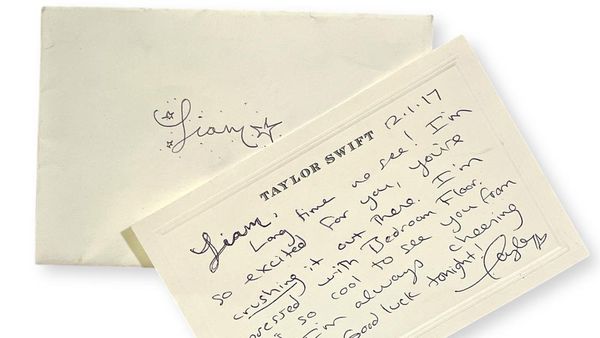 Liam
TAYLOR SWIFT
12.1.17
Liam,
Long time no see! I'm
so excited for you, you're
crushing it out there. I'm
pressed with Bedroom Floor.
so cool to see you from
I'm always cheering
Good luck tonight!
Taylor